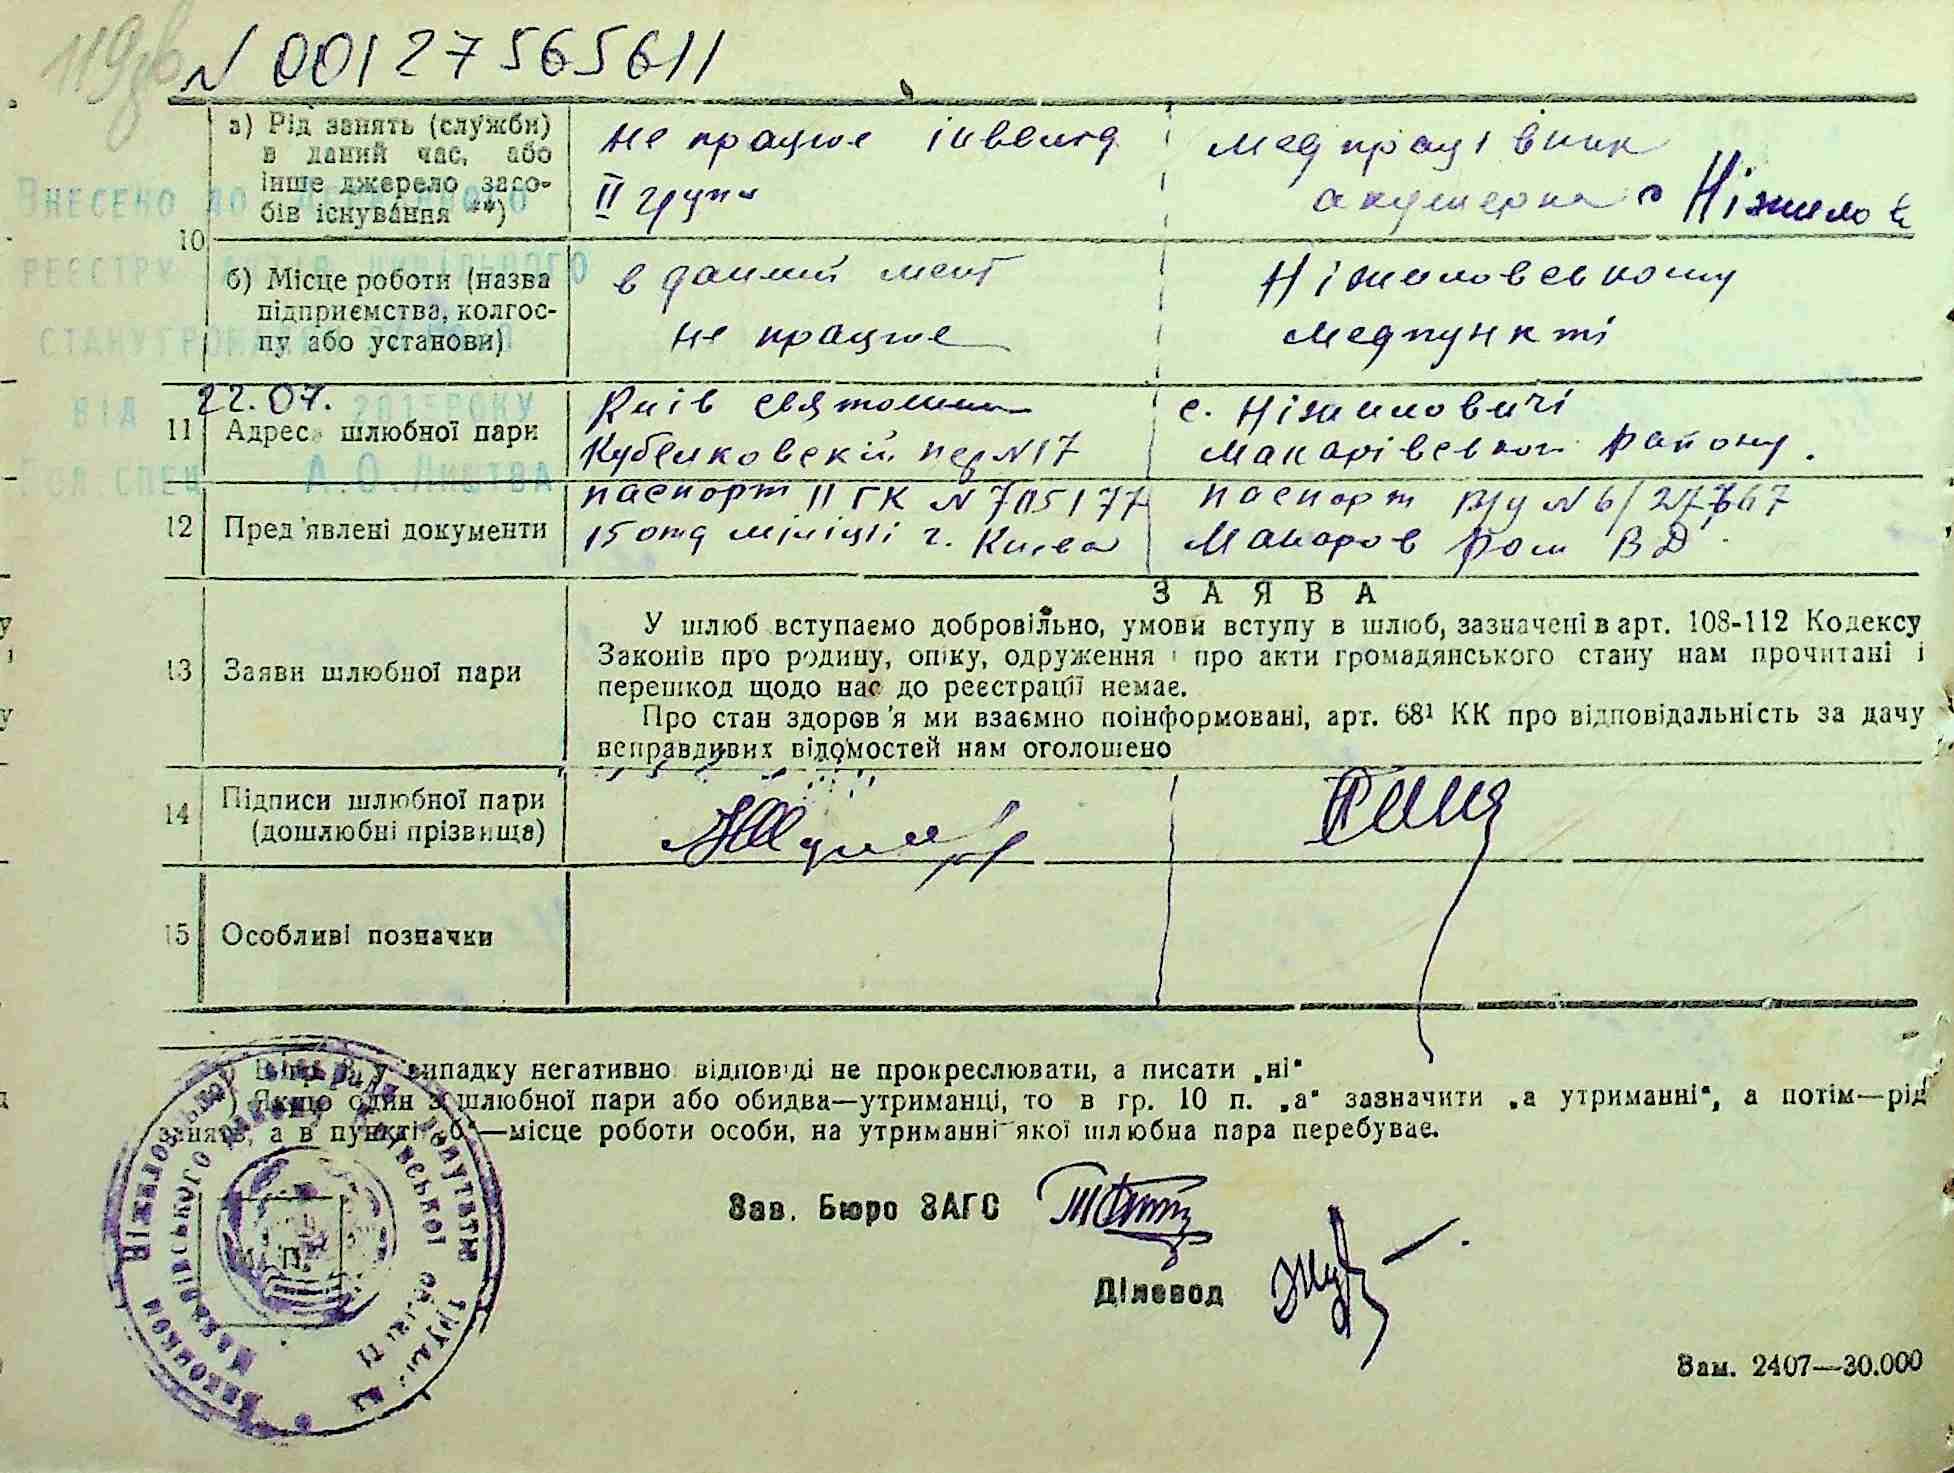 119зв
N 00127565611
а) Рід занять (служби)
в даний час, або
інше джерело засо-
бів існування **)
не працює інвалід
ІІ група
медпрацівник
акушерка с Ніжилов
ВНЕСЕНО ДО ДЕРЖАВНОГО
РЕЄСТРУ АКТІВ ЦИВІЛЬНОГО
СТАНУ ГРОМАДЯН
ВІД 22.07. 2015 РОКУ
ГОЛ.СПЕЦ. А.О.ЛИСТВА
10
б) Місце роботи (назва
підприємства, колгос-
пу або установи)
в даний мент
не працює
Ніжиловському
медпункті
11 Адреса шлюбної пари
Київ Святошин
пер N 17
с. Ніжиловичі
Макарівського району.
12 Пред'явлені документи
паспорт ІІ ГК N 705177
15 отд міліції г. Києва
паспорт N 6/
Макаров ВД
З А Я В А
13 Заяви шлюбної пари
У шлюб вступаємо добровільно, умови вступу в шлюб, зазначені в арт. 108-112 Кодексу
Законів про родину, опіку, одруження і про акти громадянського стану нам прочитані і
перешкод щодо нас до реєстрації немає.
Про стан здоров'я ми взаємно поінформовані, арт. 68¹ КК про відповідальність за дачу
неправдивих відомостей нам оголошено
14 Підписи шлюбної пари
(дошлюбні прізвища)
15 Особливі позначки
у випадку негативної відповіді не прокреслювати, а писати „ні"
) Якщо один з шлюбної пари або обидва—утриманці, то в гр. 10 п. „а" зазначити „а утриманні", а потім—рід
занять, а в пункті „б"—місце роботи особи, на утриманні якої шлюбна пара перебуває.
Зав. Бюро ЗАГС
Діловод
М. П.
Зам. 2407—30.000